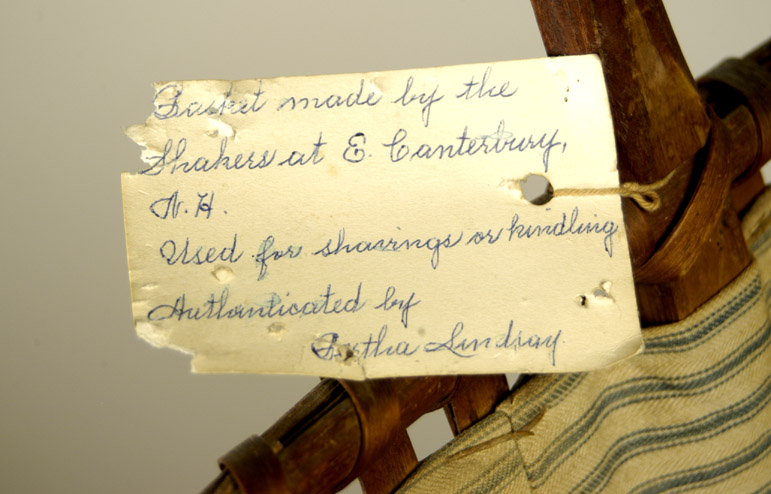 Basket made by the
Shakers at E. Canterbury,
N.H.
Used for shavings or kindling
Authanticated by
Bertha Lindsay